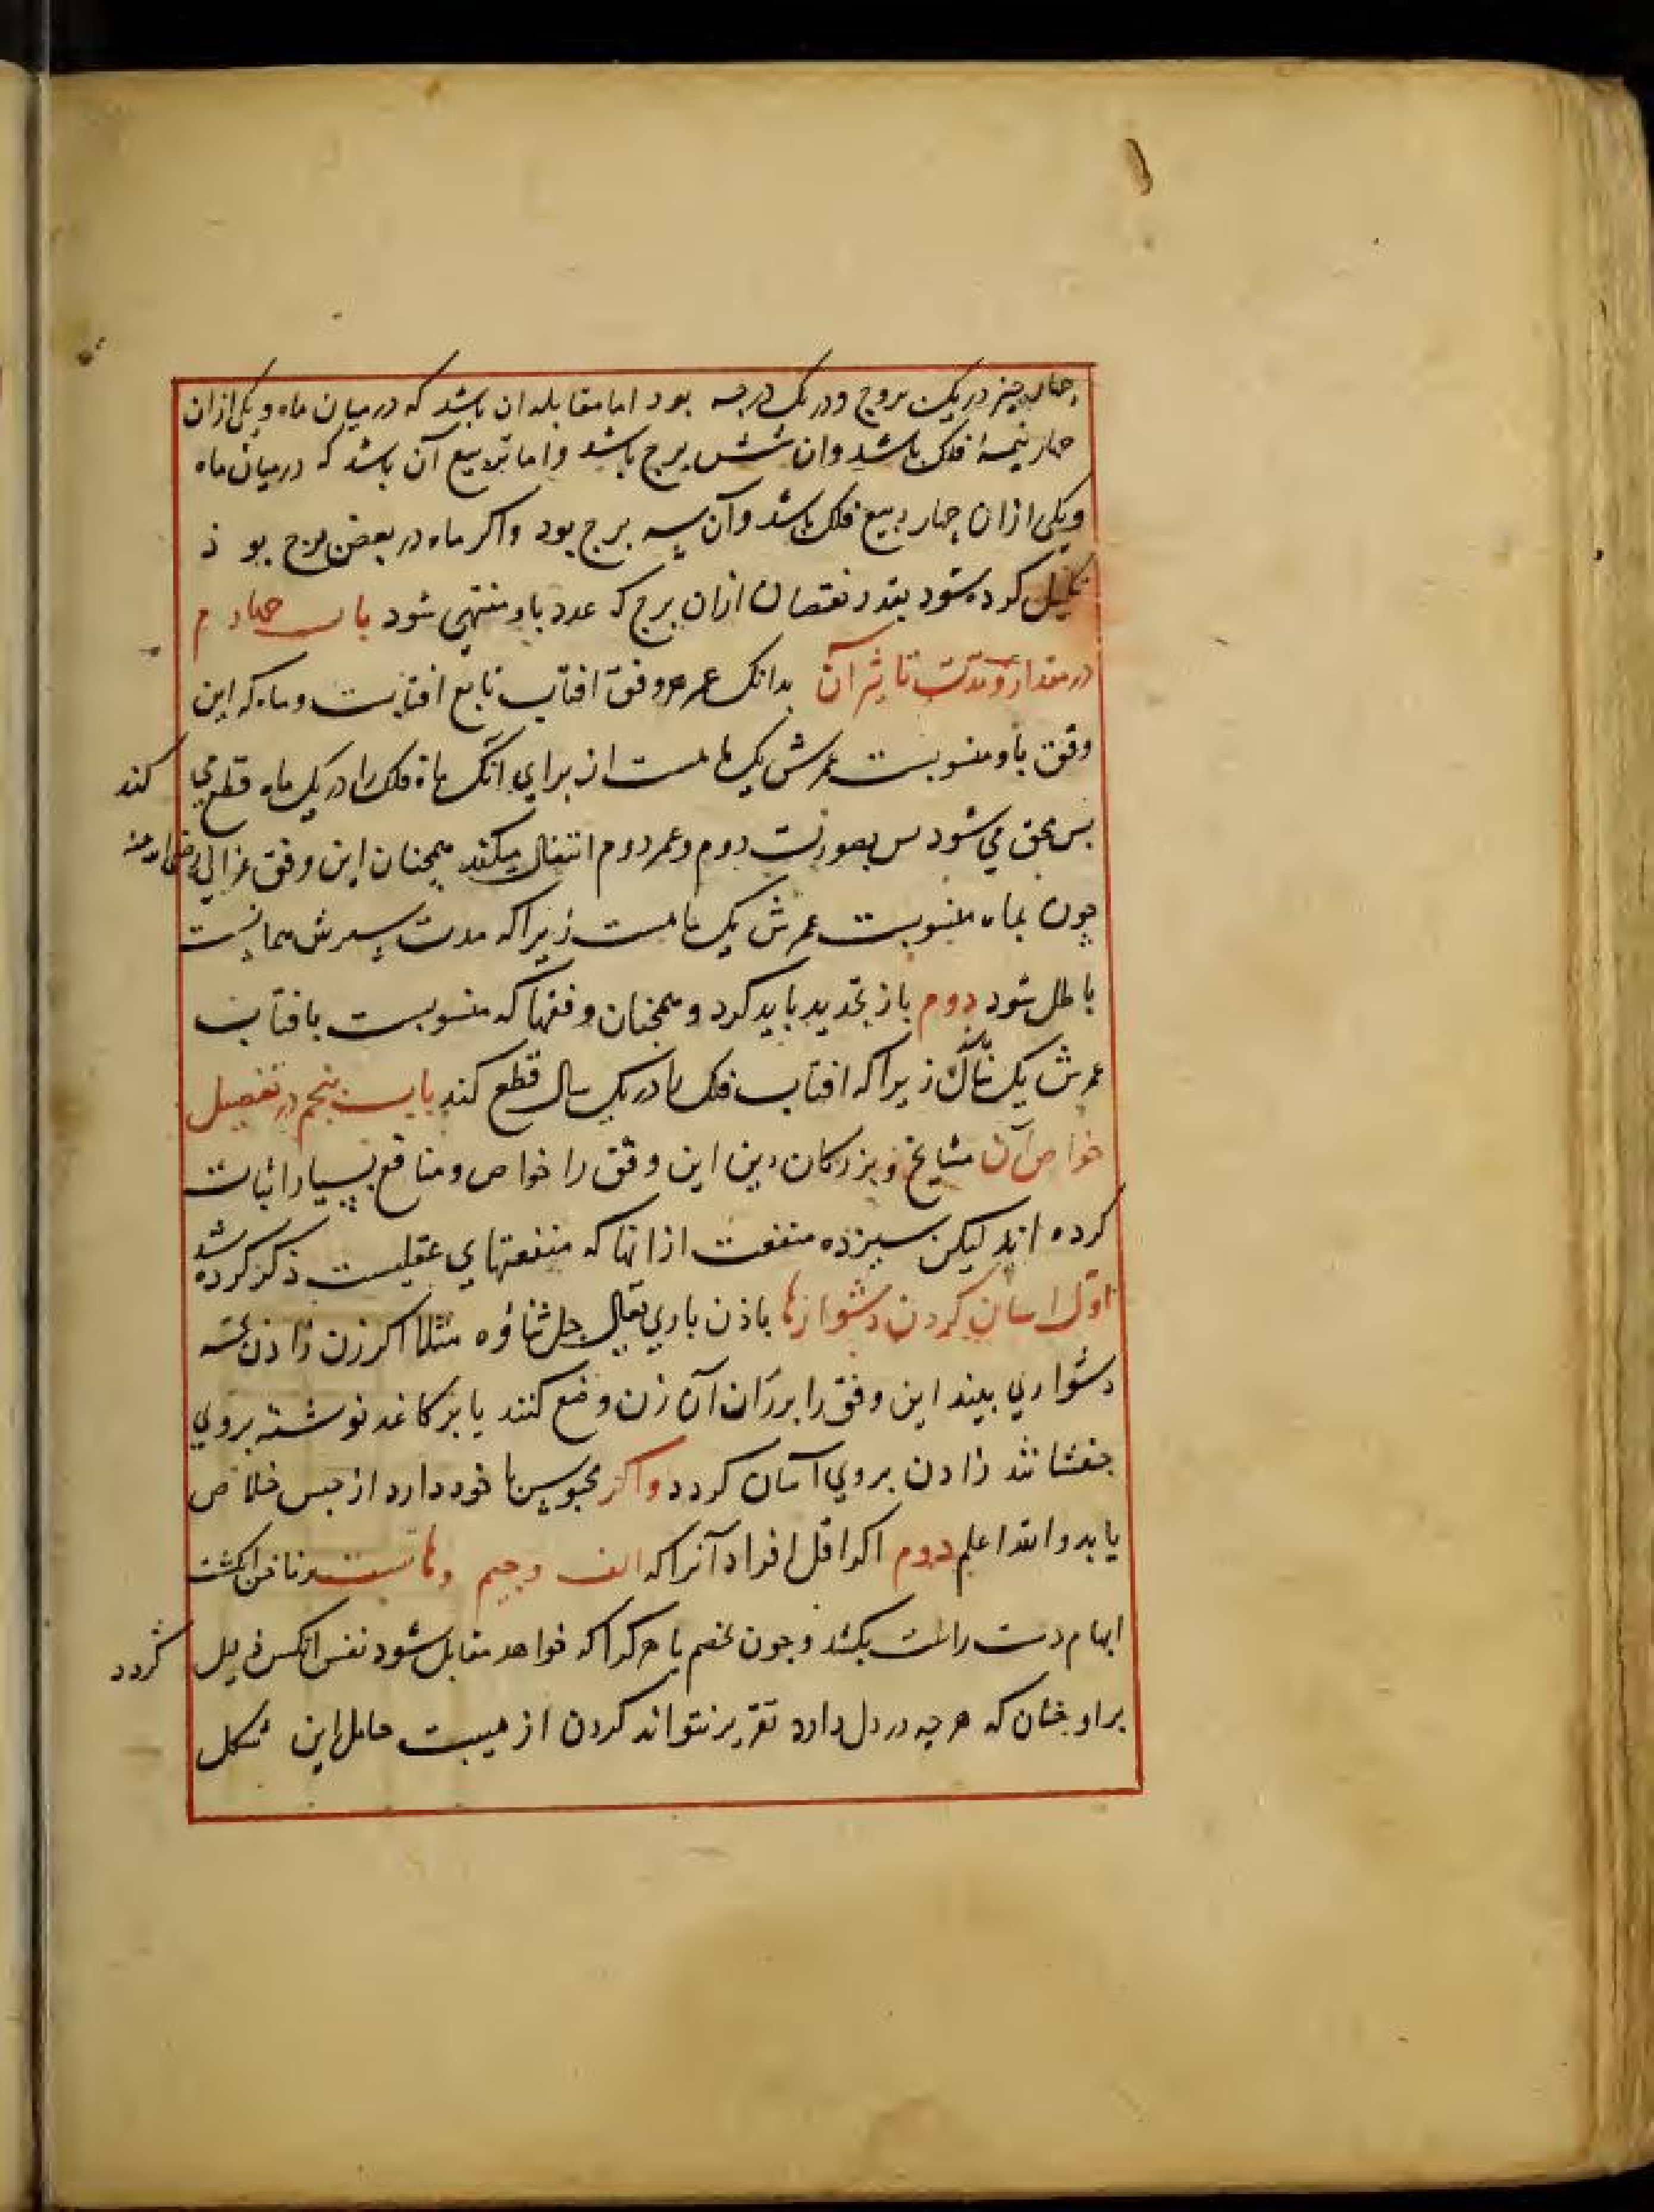 چهار چیز در یک بروج و در یک درجه بود اما مقابله ان باشد که در میان ماه و یکی ازان
چهار نیمهٔ فلک باشد وان شش برج باشد و اما تربیع آن باشد که در میان ماه
ویکی ازان چهار ربیع فلک باشد و آن سه برج بود واکر ماه در بعض برج بو ذ
کرده شود بقدر نقصان ازان برج که عدد باو منتهی شود باب چهارم
در مقدار و مدّت تاثیر آن بدانک عمر هر وفق افتاب تابع افتابست وماه که این
وفق باو منسوبست عمرش یک ماهست از برای آنک ماه فلک را در یک ماه قطع می کند
بس محق می شود بس بصورت دوم و عمر دوم انتقال میکند همچنان این وفق غزالی رضی الله عنه
چون بماه منسوبست عمرش یک ماهست زیراکه مدت سیرش همانست
باطل شود دوم باز تجدید باید کرد و همچنان وفقها که منسوبست بافتاب
عمرش یک سال زیراکه افتاب فلک را در یک سال قطع کند باب پنجم در تفصیل
خواص آن مشایخ و بزرکان دین این وفق را خواص و منافع بسیار اثبات
کرده اند لیکن سیزده منفعت ازانها که منفعتهای عقلیست ذکر کرده شد
اوّل اسان کردن دشوارها باذن باری تعالی جل ثناؤه مثلا اکر زن زادن
دشواری بیند این وفق را بر ران آن زن وضع کنند یا بر کاغد نوشته بروی
زادن بروی آسان کردد واکر محبوس با خود دارد از حبس خلاص
یابد والله اعلم دوم اکر اقل افراد آنرا که الف وجیم وها بر ناخن انکشت
ابهام دست راست بکشد و چون بخصم یا هر کرا که خواهد مقابل شود نفس انکس ذلیل گردد
براو چنان که هر چه در دل دارد تقریر نتواند کردن از هیبت حامل این شکل